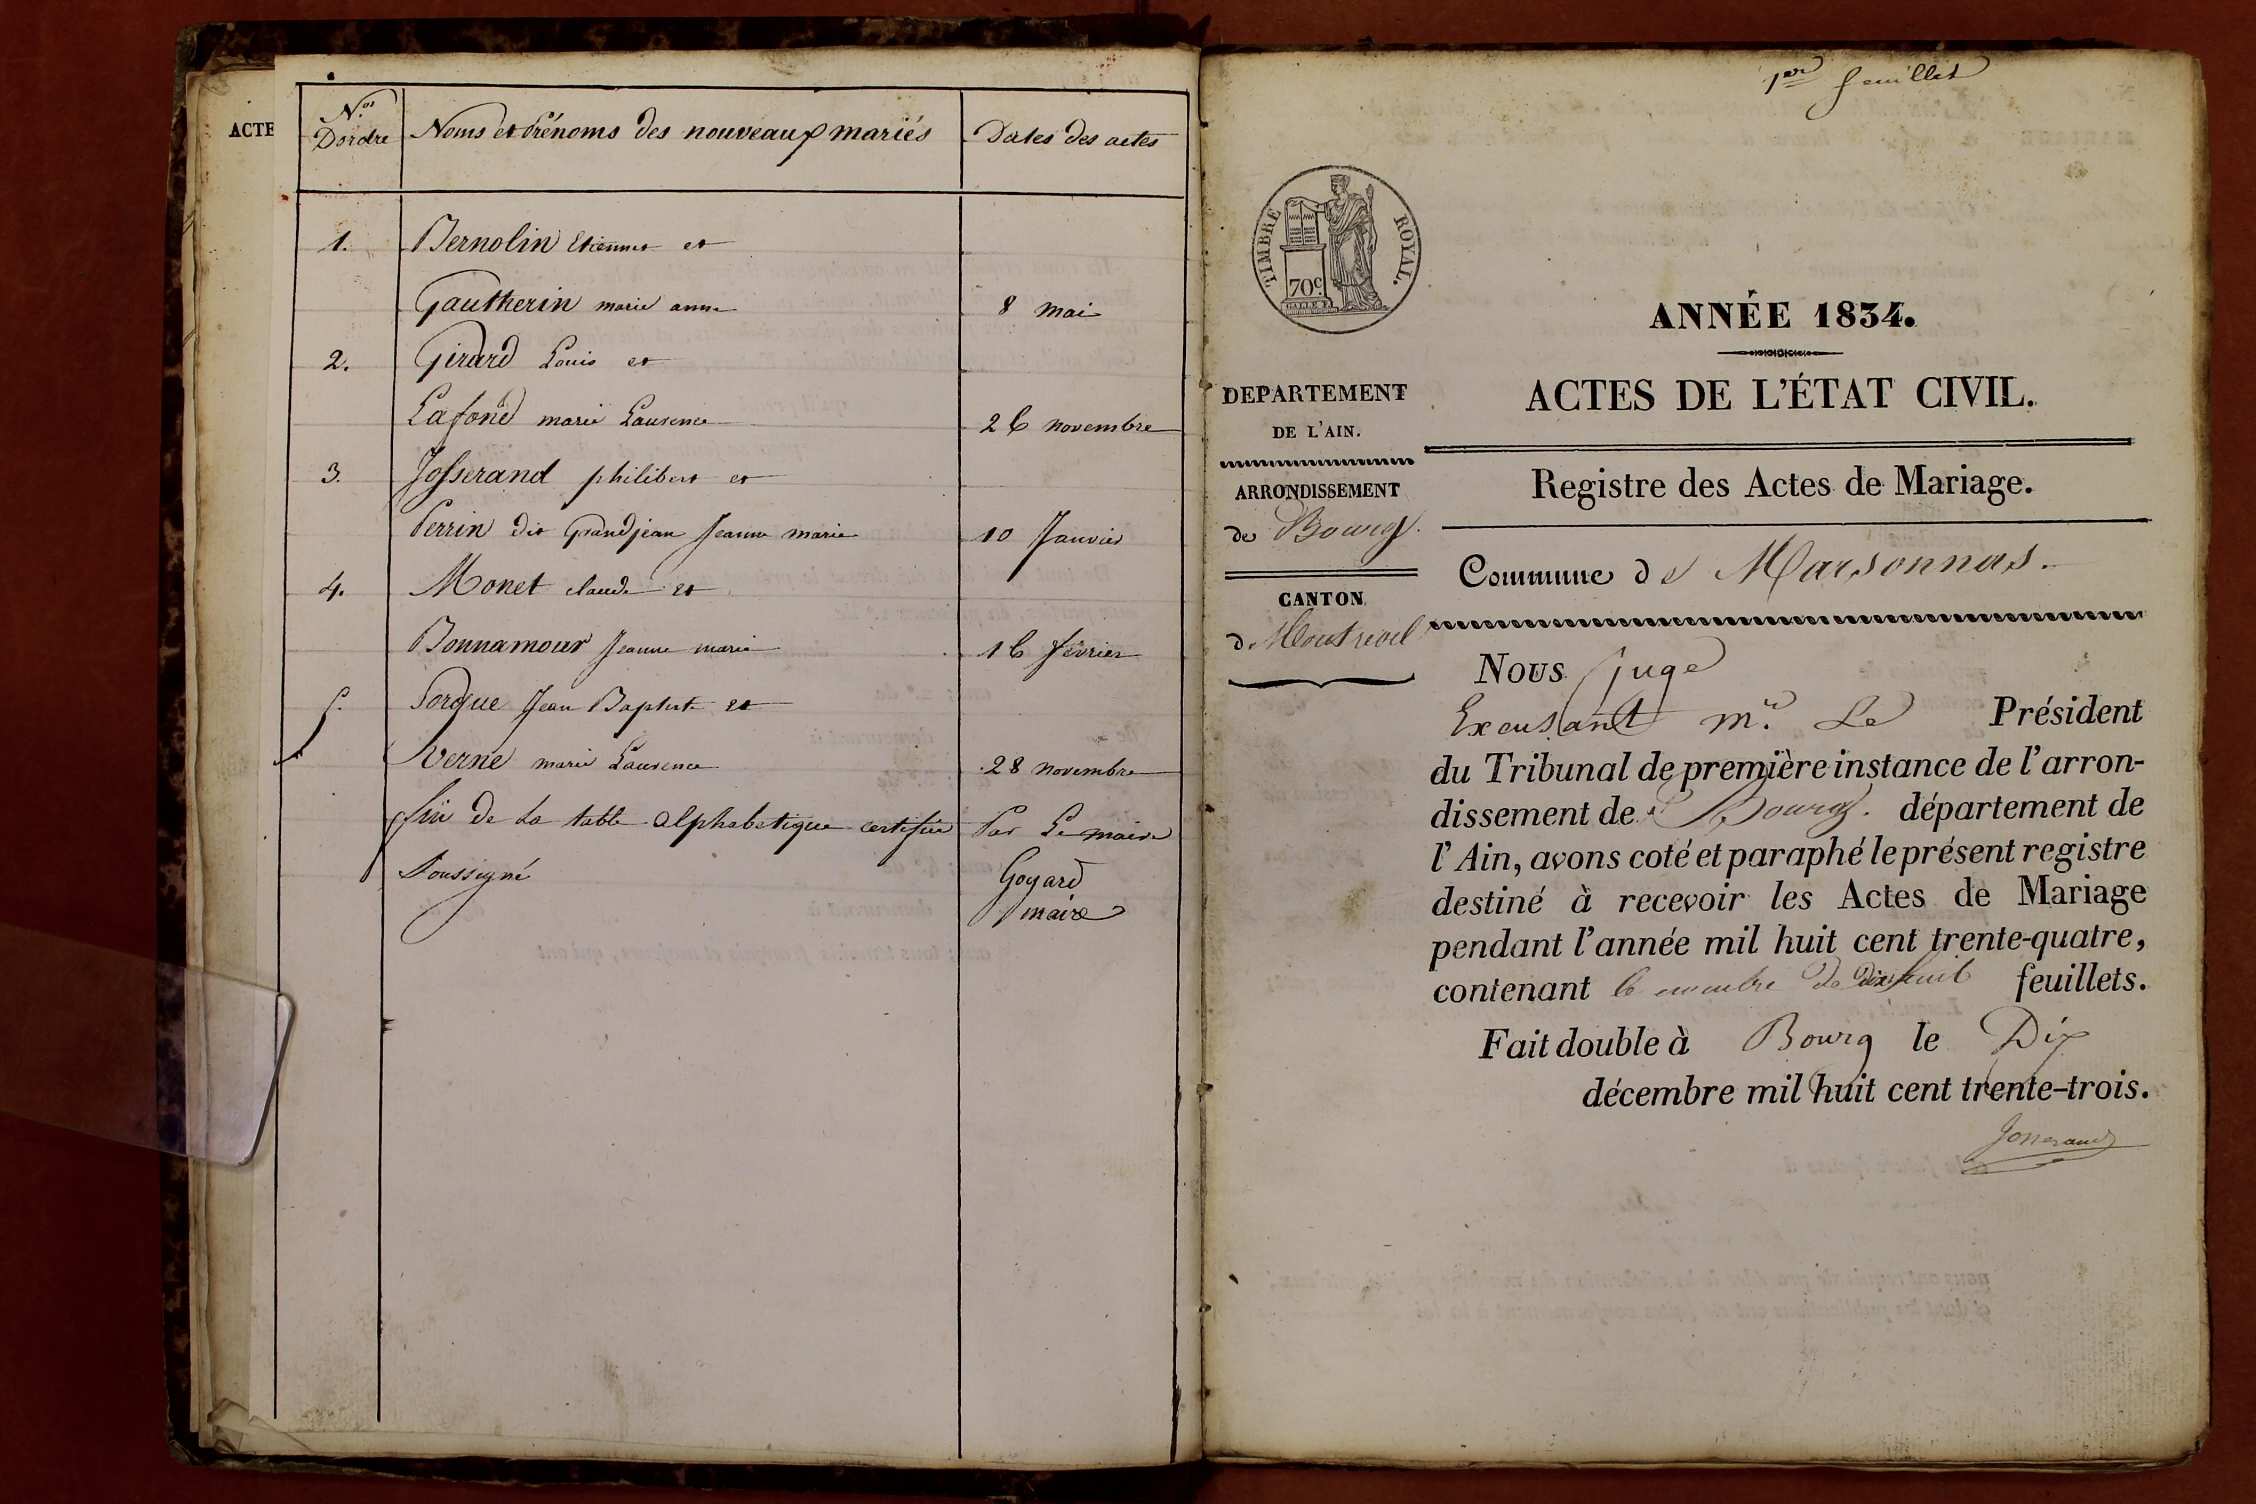 ACTE
N.os
D'ordre
Noms et Prénoms des nouveaux mariés
Dates des actes
1. Bernolin Etienne et
Gautherin marie anne 8 mai
2. Girard Louis et
Lafond marie Laurence 26 novembre
3. Josserand philibert et
Perrin dit Grandjean Jeanne marie 10 Janvier
4. Monet claude et
Bonnamour Jeanne marie 16 février
5. Sorgue Jean Baptiste et
Verne marie Laurence 28 novembre
fin de La table alphabetique certifiée Par Le maire
Soussigné Goyard
maire
1er feuillet
TIMBRE ROYAL.
70c.
ANNÉE 1834.
ACTES DE L'ÉTAT CIVIL.
Registre des Actes de Mariage.
DEPARTEMENT
DE L'AIN.
ARRONDISSEMENT
de Bourg.
CANTON
de Montrevel
Commune de Marsonnas.
Nous Juge
Excusant mr. Le Président
du Tribunal de première instance de l'arron-
dissement de Bourg. département de
l'Ain, avons coté et paraphé le présent registre
destiné à recevoir les Actes de Mariage
pendant l'année mil huit cent trente-quatre,
contenant le nombre de dix huit feuillets.
Fait double à Bourg le Dix
décembre mil huit cent trente-trois.
Josserand